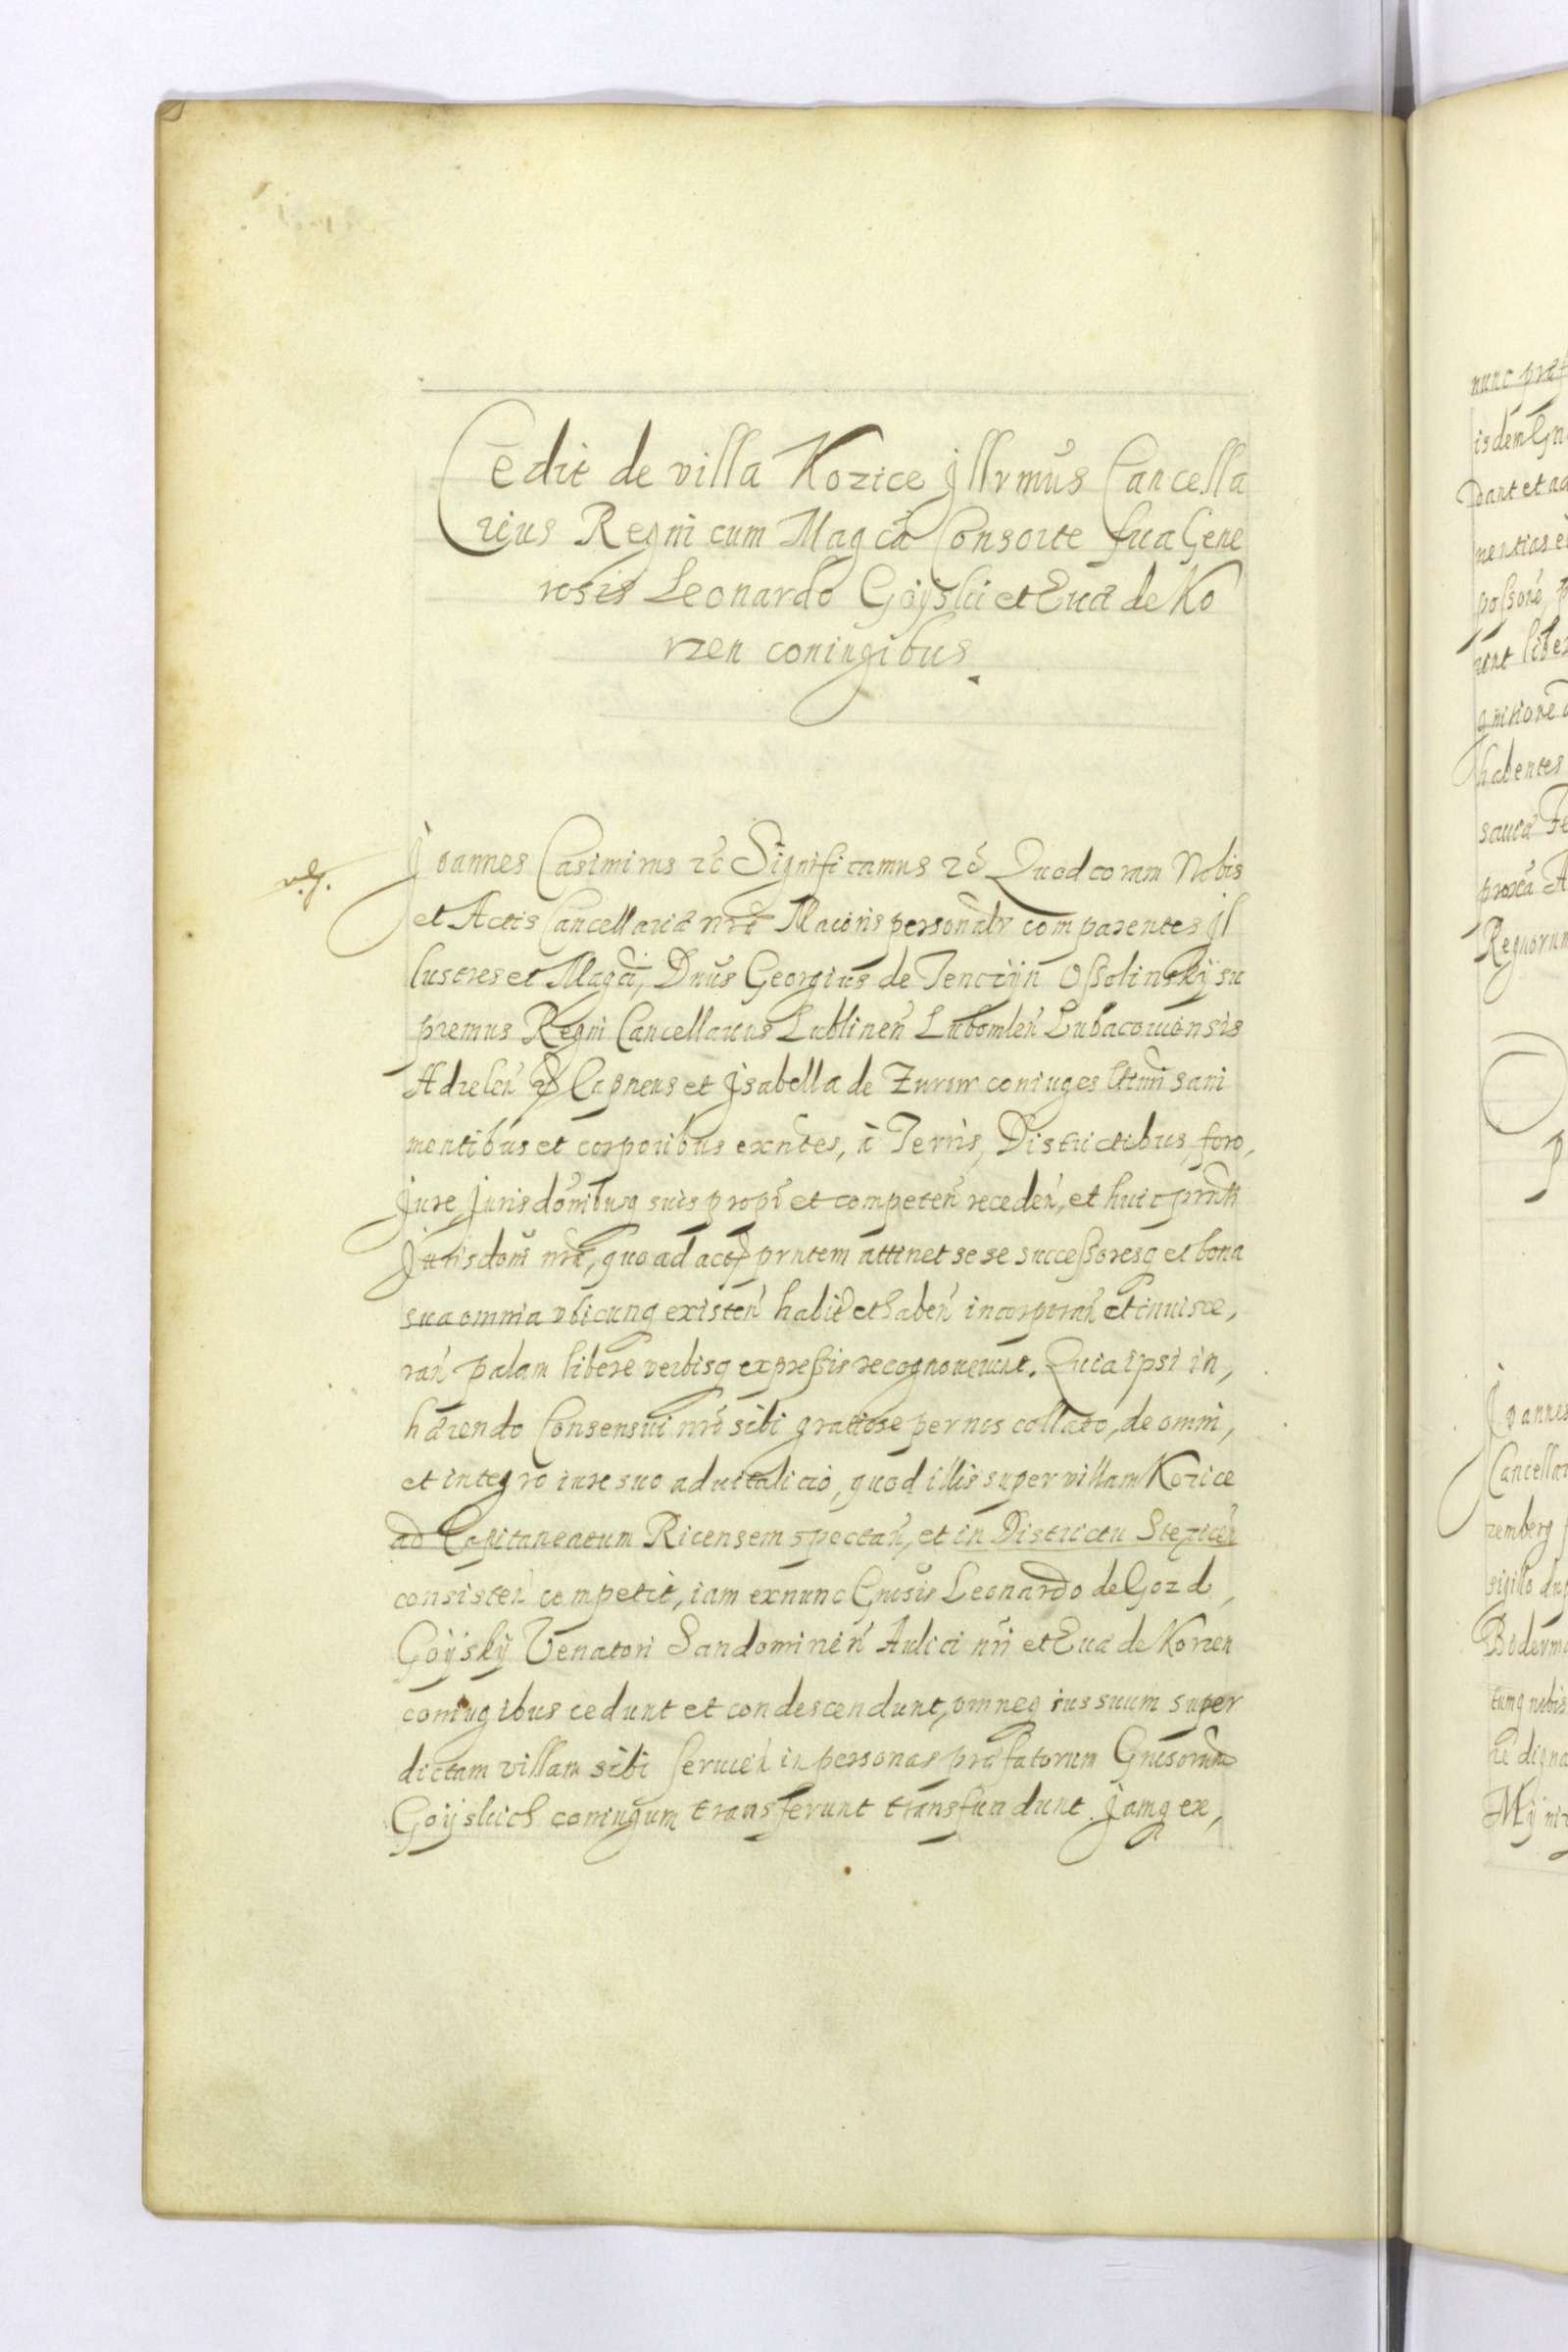 Cedit de villa Kozice Jllrmus Cancella
rius Regni cum Magca Consorte sua Gene
rosis Leonardo Goÿski et Eua de Ko
rzen coniugibus
Joannes Casimirus &c Significamus &c Quod coram Nobis
et Actis Cancellariæ nræ Maioris personalr comparentes Jl
lustres et Magci, Dnus Georgius de Tenczÿn Ossolinskÿ su
premus Regni Cancellarius Lublinen Lubomlen Lubaczouiensis
Adzelen & Capneus et Jsabella de Zurow coniuges sani
mentibus et corporibus exntes, à Terris, Districtibus, foro,
Jure, Jurisdonibusq suis propr et competen receden, et huic prnti
Jurisdoni nræ, quo ad actum prntem attinet se se successoresq et bona
sua omnia vbicunq existen habit et haben incorporan et inuisce,
ran palam libere verbisq expressis recognouerunt. Quia ipsi in,
hærendo Consensui nro sibi gratiose per nos collato, de omni,
et integro iure suo aduitalicio, quod illis super villam Kozice
ad Capitaneatum Ricensem spectan, et in Districtu Stezicen
consisten competit, iam exnunc Gnosis Leonardo de Gozd,
Goÿskÿ Venatori Sandomirien Aulici nri et Eua de Korzen
coniugibus cedunt et condescendunt, omneq ius suum super
dictam villam sibi seruien in personas præfatorum Gnosorum
Goÿskich coniugum transferunt transfundunt. Jamq ex,
nunc præf
isdem Gn
dant et ad
habentes
Regnorum
Joannes
Cancellar
remberg